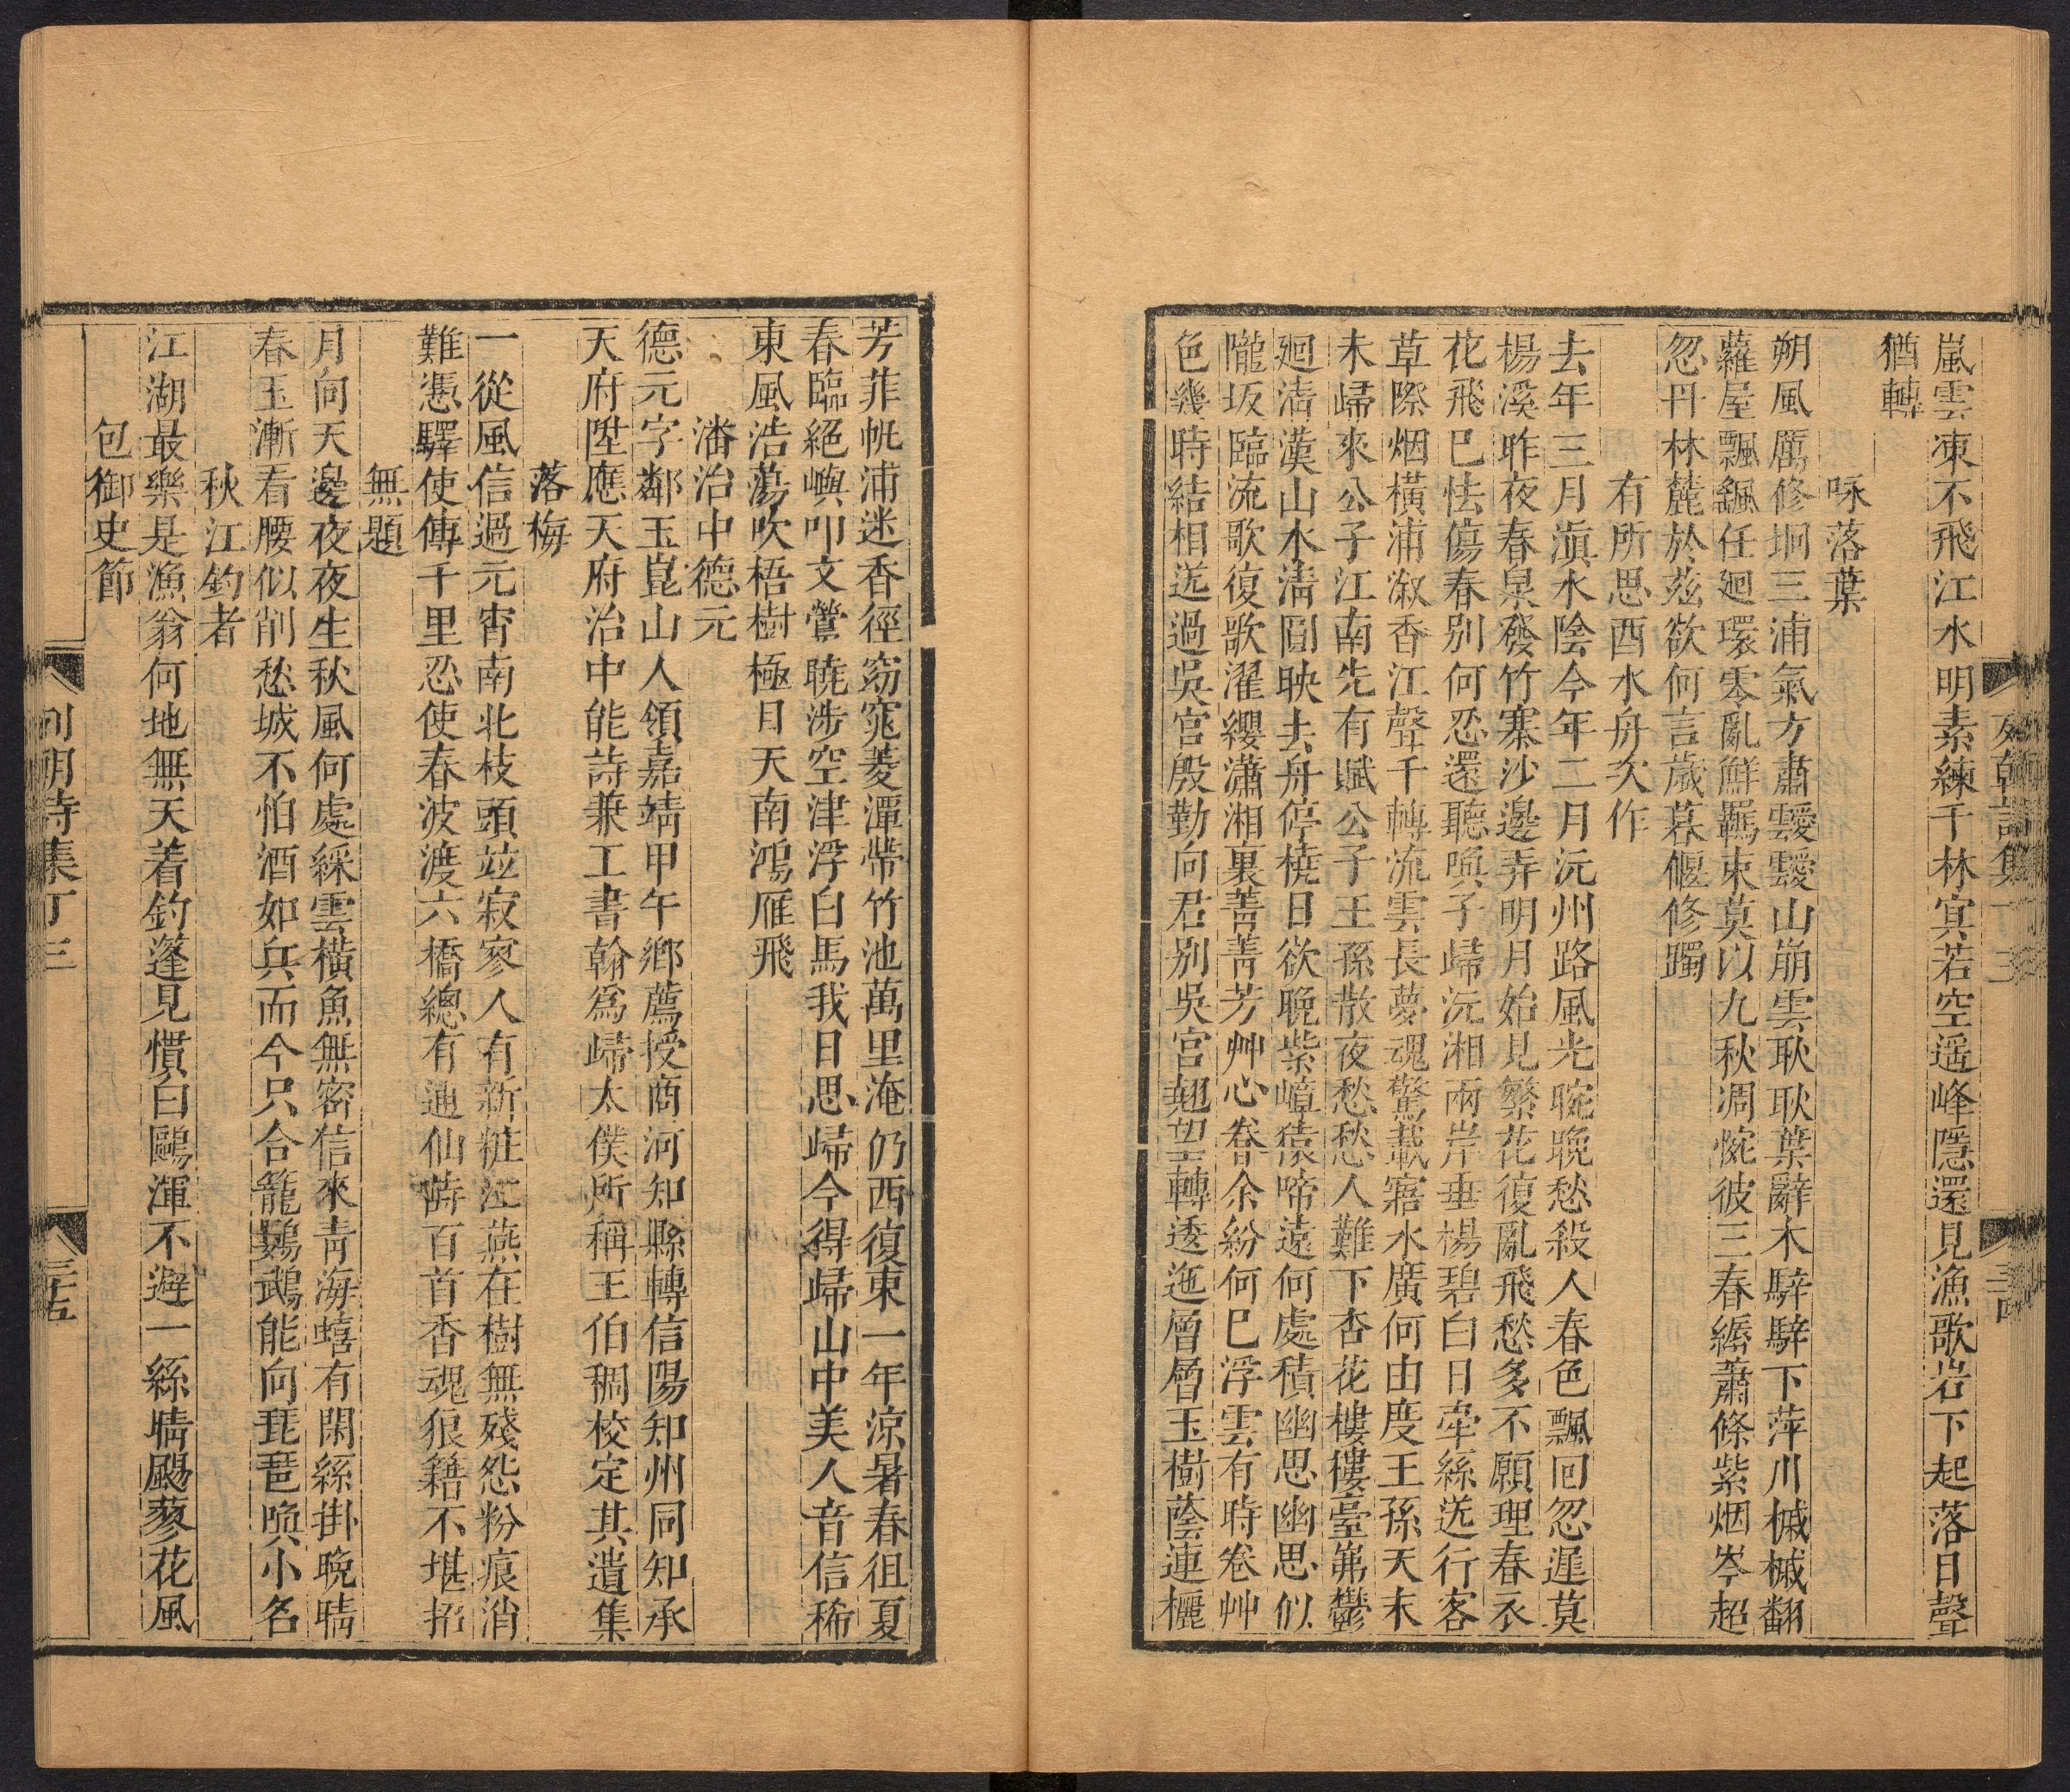 嵐雲凍不飛江水明素練千林寘若空遥峰隱還見漁歌岩下起落日聲
猶轉
咏落葉
朔風厲修坰三浦氣方肅靉靉山崩雲耿耿葉辭木騂騂下萍川槭槭翻
蘿屋飄颻任廻環零亂鮮羈束莫以九秋凋惋彼三春縟蕭條紫烟岑超
忽丹林麓於茲欲何言歲暮偃修躅
有所思酉水舟次作
去年三月滇水陰今年二月沅州路風光晼晚愁殺人春色飄囘忽遲莫
楊溪昨夜春泉發竹寨沙邊弄明月始見繁花復亂飛愁多不願理春衣
花飛巳怯傷春别何忍還聽喚子歸沅湘兩岸垂楊碧白日牽絲送行客
草際烟橫浦溆香江聲千轉流雲長夢魂驚載寤水廣何由度王孫天末
未歸來公子江南先有賦公子王孫散夜愁愁人難下杏花樓樓臺第鬱
廻清漢山水清圓映去舟停橈日欲晚紫嶂猿啼遠何處積幽思幽思似
隴坂臨流歌復歌濯纓瀟湘裏菁菁芳艸心眷余紛何巳浮雲有時卷艸
色幾時結相送過吳官殷勤向君别吳宫翹望轉逶迤層層玉樹蔭連欐
列朝詩集丁三
三十四
芳菲帆浦迷香徑窈窕菱潭帶竹池萬里淹仍西復東一年涼暑春徂夏
春臨絕嶼叩文鸞曉涉空津浮白馬我日思歸今得歸山中美人音信稀
東風浩蕩吹梧樹極目天南鴻雁飛
潘治中德元
德元字鄰玉崑山人領嘉靖甲午鄉薦授商河知縣轉信陽知州同知承
天府陞應天府治中能詩兼工書翰爲歸太僕所稱王伯稠校定其遺集
落梅
一從風信過元宵南北枝頭竝寂寥人有新粧江燕在樹無殘怨粉痕消
難憑驛使傳千里忍使春波渡六橋總有逋仙時百首香魂狼籍不堪招
無題
月向天邊夜夜生秋風何處綵雲橫魚無密信來青海蟢有閑絲掛晚晴
春玉漸看腰似削愁城不怕酒如兵而今只合籠鸚鵡能向琵琶喚小名
秋江釣者
江湖最樂是漁翁何地無天着釣蓬見慣白鷗渾不避一絲晴颺蓼花風
包御史節
列朝詩集丁三
三十五